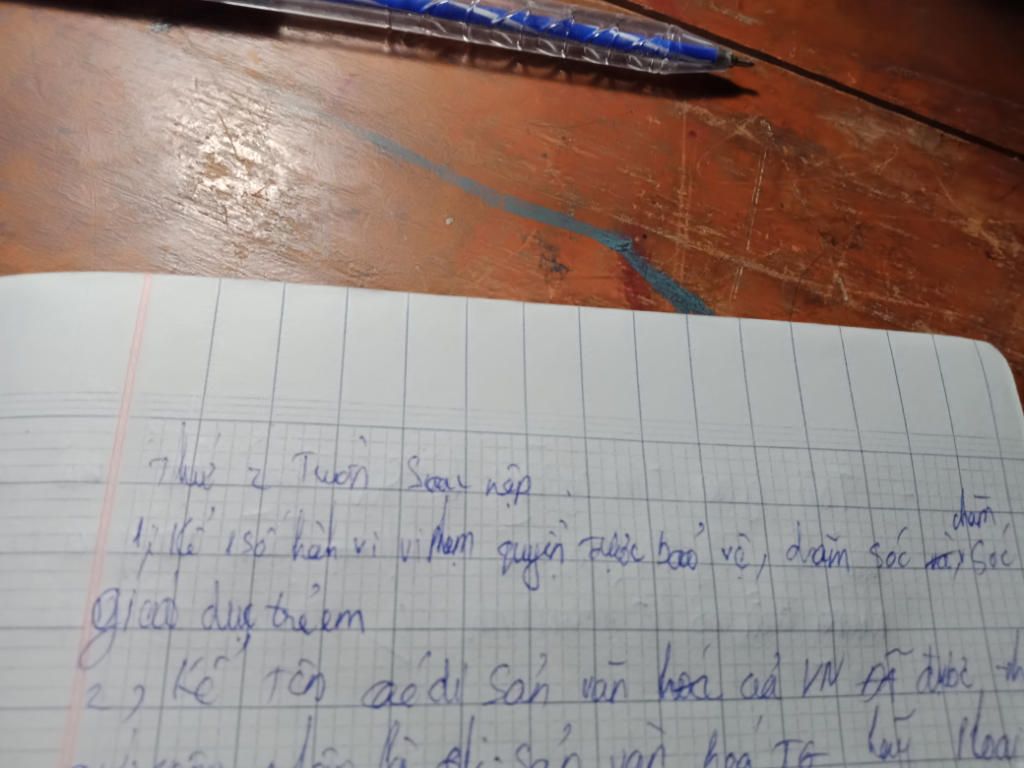 Thứ 2 Tuần Sau nộp.
chăm
1, Kể 1 số hàn vi vi phạm quyền được bảo vệ, chăm sóc Sóc
giáo dục trẻ em
2, Kể Tên các di sản văn hoá của VN ĐÃ được
di sản văn hoá TG